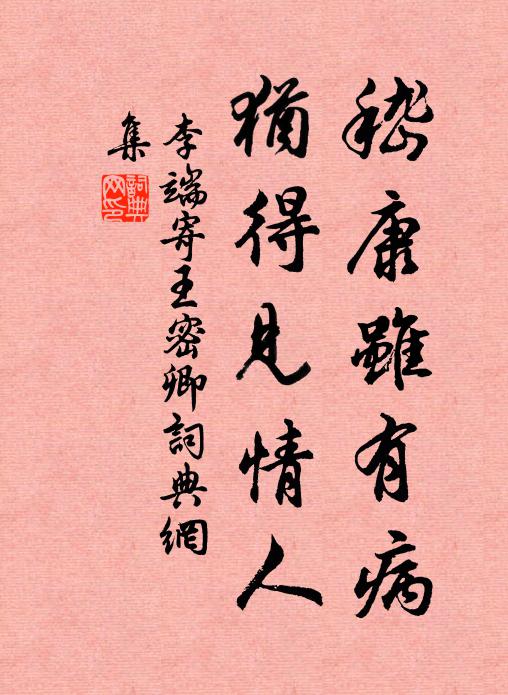 嵇康雖有病
猶得見情人
李端寄王密卿詞典網
集
詞典
网印